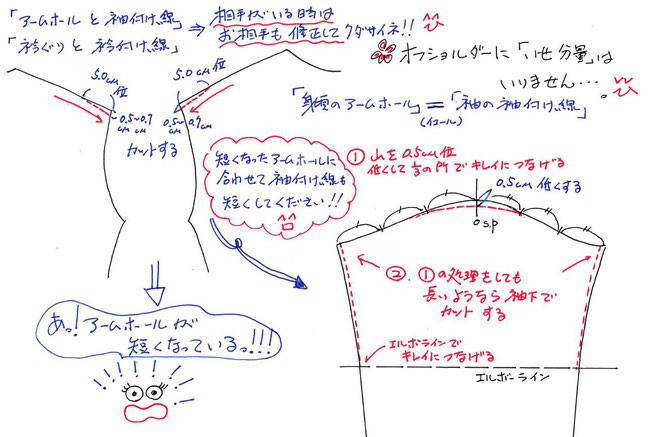 「アームホールと袖付け線」⇒ 相手がいる時は
「衿ぐりと衿付け線」 お相手も修正してクダサイネ!!
オフショルダーに「いせ分量」は
いりません…。
「身頃のアームホール」=「袖の袖付け線」
(イコール)
5.0cm位
5.0cm位
0.5~0.7cm
0.5~0.7cm
カットする
短くなったアームホールに
合わせて袖付け線も
短くしてください!!
① 山を0.5cm位
低くして1/3の所でキレイにつなげる
0.5cm低くする
S.P
② ①の処理をしても
長いようなら袖下で
カットする
あっ!アームホールが
短くなっているっ!!!
エルボーラインで
キレイにつなげる
エルボーライン